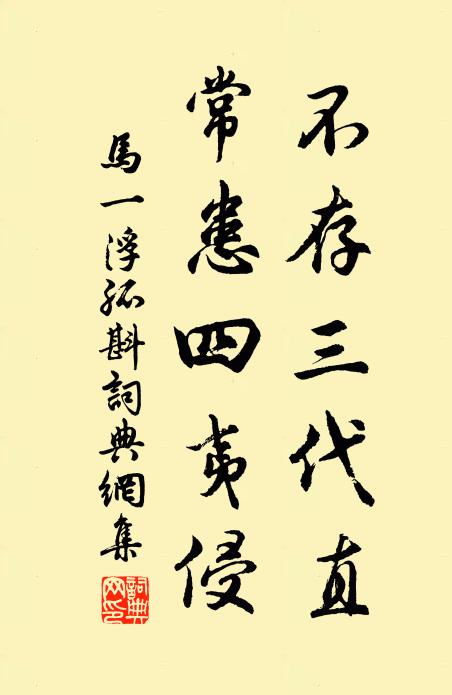 不存三代直
常患四夷侵
馬一浮孤斟詞典網集
詞典網印